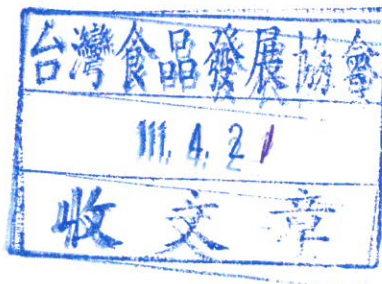 台灣食品發展協會
111. 4. 21
收文章